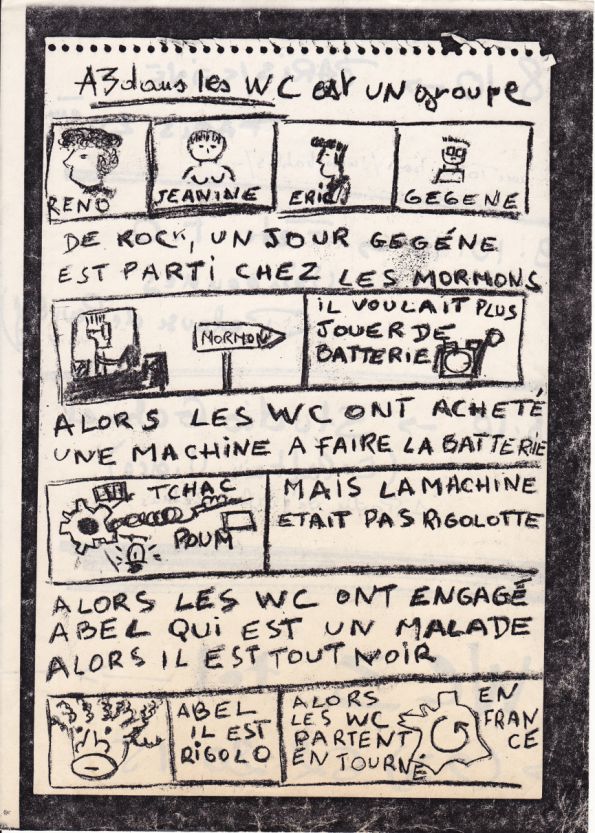 A3 dans les WC est un groupe
RENO
JEANINE
ERIC
GEGENE
DE ROCK, UN JOUR GEGÉNE
EST PARTI CHEZ LES MORMONS
MORMON
IL VOULAIT PLUS
JOUER DE
BATTERIE
ALORS LES WC ONT ACHETÉ
UNE MACHINE A FAIRE LA BATTERIE
TCHAC
POUM
MAIS LA MACHINE
ETAIT PAS RIGOLOTTE
ALORS LES WC ONT ENGAGÉ
ABEL QUI EST UN MALADE
ALORS IL EST TOUT NOIR
ABEL
IL EST
RIGOLO
ALORS
LES WC
PARTENT
EN TOURNÉ
EN
FRAN
CE